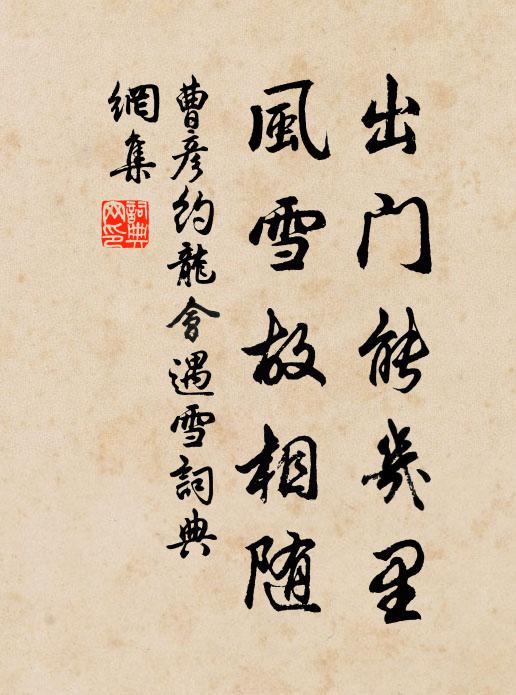 出门能幾里
風雪故相随
曹彦約龍會遇雪詞典
網集
詞典
网印